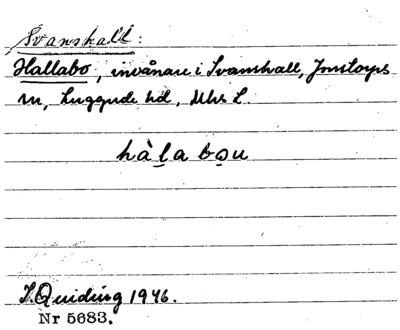 Svanshall:
Hallabo, invånare i Svanshall, Jonstorps
sn, Luggude hd, Mhs L.
hàlabou
I. Quiding 1946.
Nr 5683.